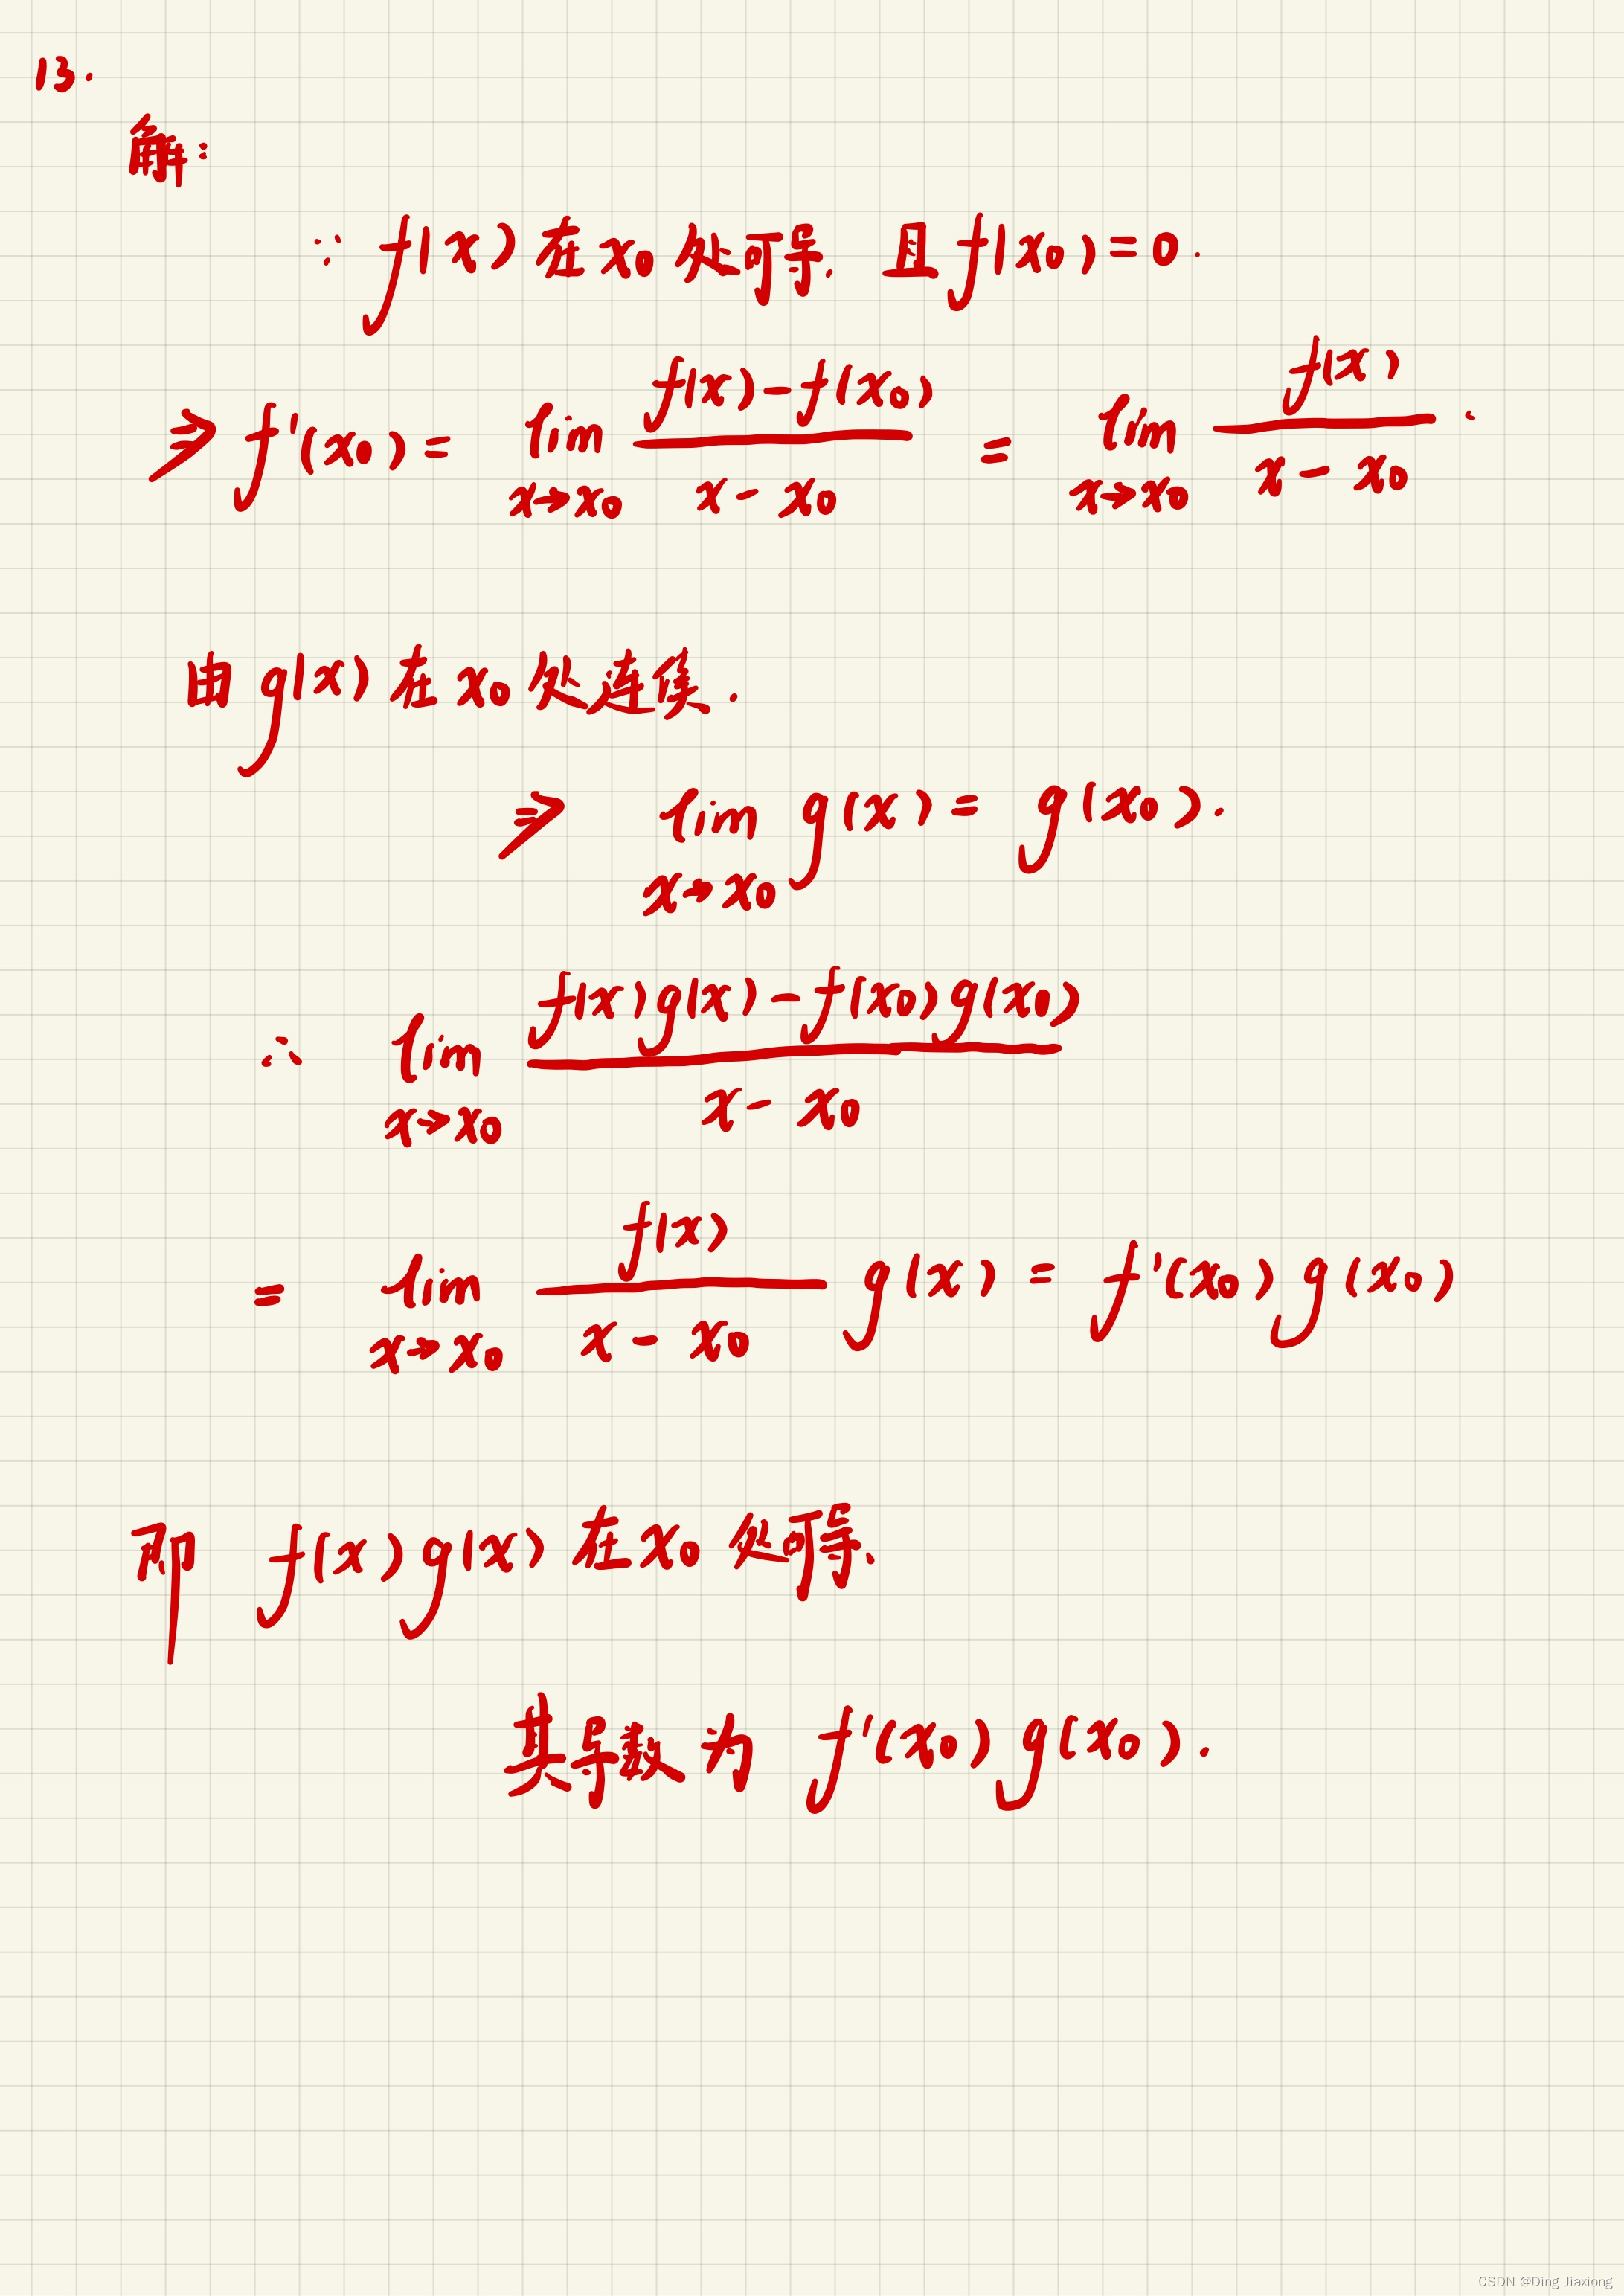 13.
解:
∵ f(x)在x₀处可导. 且f(x₀)=0.
⇒ f'(x₀)= lim_{x→x₀} (f(x)-f(x₀))/(x-x₀) = lim_{x→x₀} f(x)/(x-x₀).
由g(x)在x₀处连续.
⇒ lim_{x→x₀} g(x)= g(x₀).
∴ lim_{x→x₀} (f(x)g(x)-f(x₀)g(x₀))/(x-x₀)
= lim_{x→x₀} f(x)/(x-x₀) g(x) = f'(x₀)g(x₀)
即 f(x)g(x)在x₀处可导.
其导数为 f'(x₀)g(x₀).
CSDN @Ding Jiaxiong